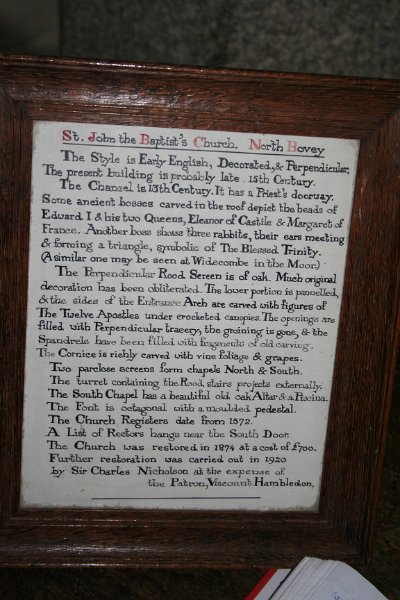 St. John the Baptist's Church. North Bovey
The Style is Early English, Decorated, & Perpendicular.
The present building is probably late 15th Century.
The Chancel is 13th Century. It has a Priest's doorway.
Some ancient bosses carved in the roof depict the heads of
Edward I & his two Queens, Eleanor of Castile & Margaret of
France. Another boss shows three rabbits, their ears meeting
& forming a triangle, symbolic of The Blessed Trinity.
(A similar one may be seen at Widecombe in the Moor.)
The Perpendicular Rood Screen is of oak. Much original
decoration has been obliterated. The lower portion is pannelled,
& the sides of the Entrance Arch are carved with figures of
The Twelve Apostles under crocketed canopies. The openings are
filled with Perpendicular tracery, the groining is gone, & the
Spandrels have been filled with fragments of old carving.
The Cornice is richly carved with vine foliage & grapes.
Two parclose screens form chapels North & South.
The turret containing the Rood, stairs projects externally.
The South Chapel has a beautiful old oak Altar & a Piscina.
The Font is octagonal with a moulded pedestal.
The Church Registers date from 1572.
A List of Rectors hangs near the South Door.
The Church was restored in 1874 at a cost of £700.
Further restoration was carried out in 1920
by Sir Charles Nicholson at the expense of
the Patron, Viscount Hambledon.